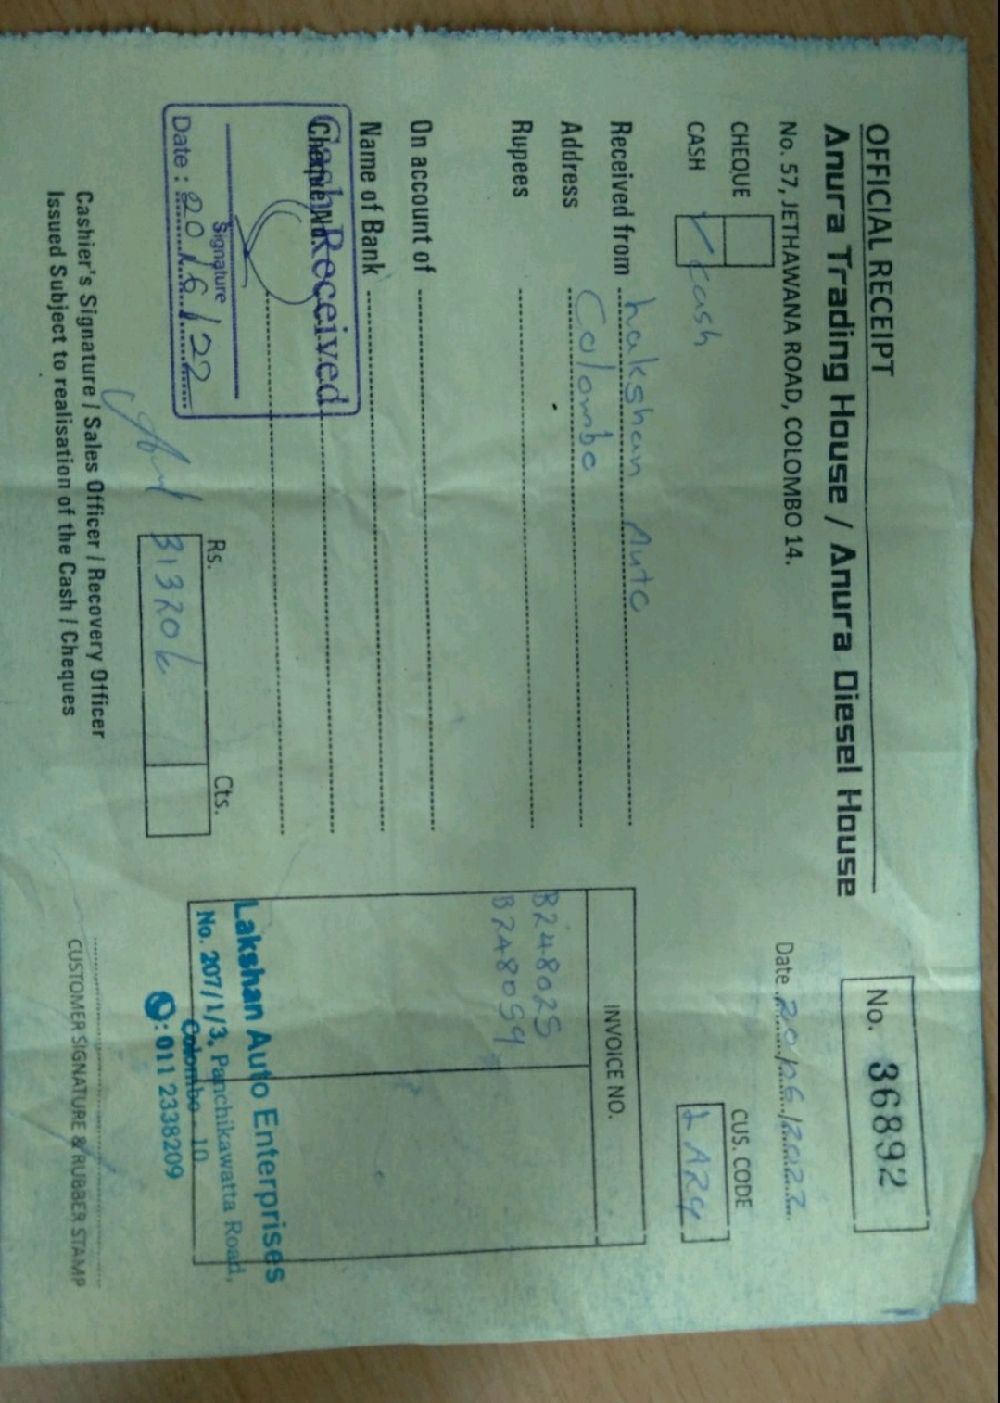 OFFICIAL RECEIPT
Anura Trading House / Anura Diesel House
No. 57, JETHAWANA ROAD, COLOMBO 14.
No. 36892
Date 20/06/2022
CHEQUE
CASH ✓ Cash
CUS. CODE
Received from Lakshan Auto
Address Colombo
Rupees
On account of
Name of Bank
Cheque No.
INVOICE NO.
B248025
B248059
Cash Received
Signature
Date : 20/6/22
Rs. Cts.
31320
Lakshan Auto Enterprises
No. 207/1/3, Panchikawatta Road,
Colombo - 10
: 011 2338209
Cashier's Signature / Sales Officer / Recovery Officer
Issued Subject to realisation of the Cash / Cheques
CUSTOMER SIGNATURE & RUBBER STAMP